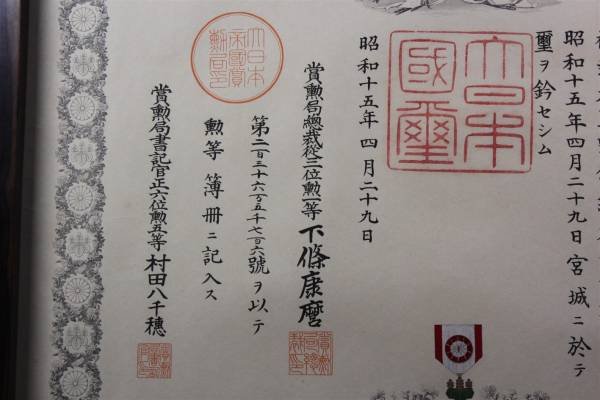 昭和十五年四月二十九日宮城ニ於テ
璽ヲ鈐セシム
大日本
國璽
昭和十五年四月二十九日
賞勲局總裁從三位勲一等下條康麿
第二百三十六万五千七百六號ヲ以テ
勲等簿册ニ記入ス
賞勲局書記官正六位勲五等村田八千穂
大日本
帝國賞
勲局印